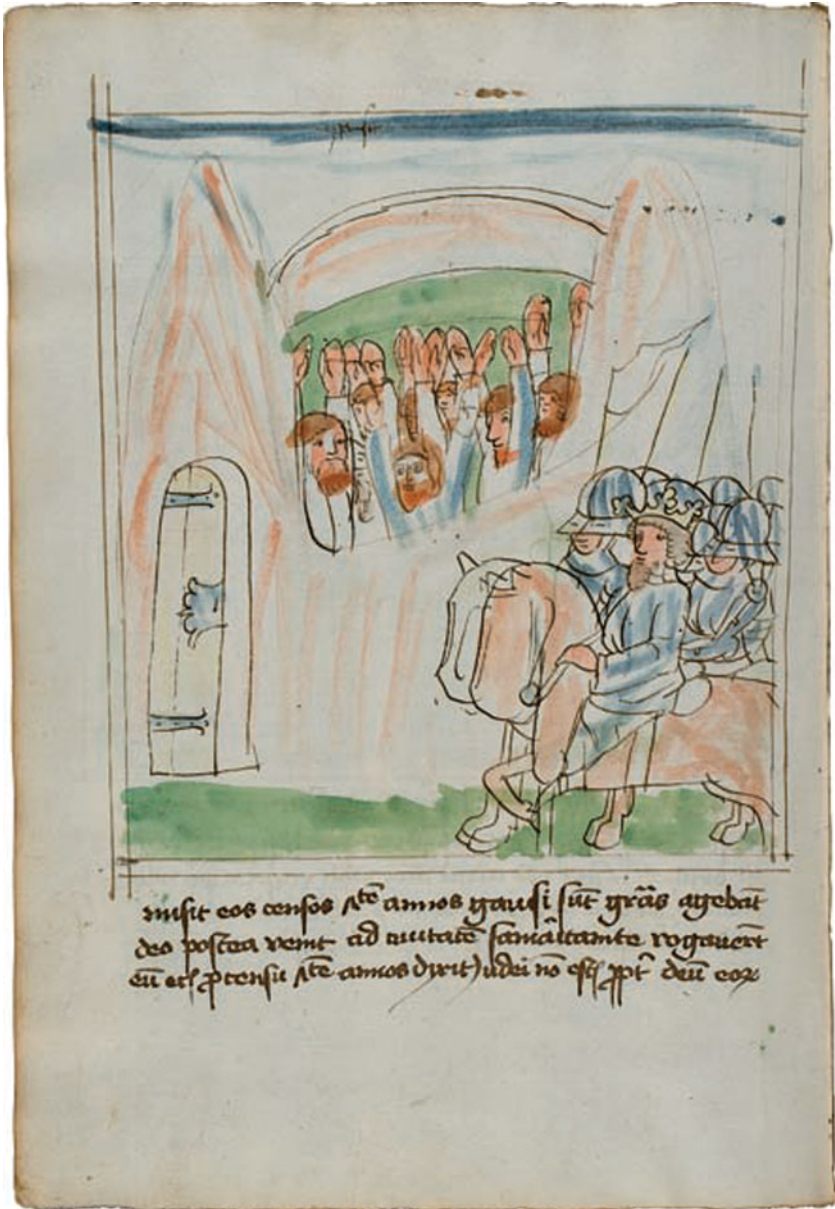 misit eos censos ʌtē annos gauisi sūt grās agebāt
deo postea venit ad ciuitatē samaritante rogauert
eū et p censu ʌtē annos dixit Judei nō estis ꝓpt deū eoꝝ